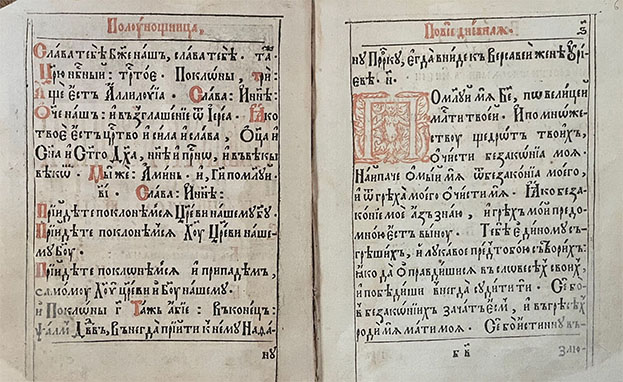 Полоунощница,
Слава тебѣ Бже нашъ, слава тебѣ. та.
Црю нбный: трѓое. Поклоны, три
Аще єсть Аллилоуїа. Слава: Иннѣ:
Оче нашъ: и възглашенїе ѿ Іереа. Ꙗко
твое єсть цртво и сила и слава, Оца и
Сна и Стго Дха, ннѣ и прно, и въ вѣкы
вѣкѡ. Мы же: Аминь. и, Ги помилуи.
ві. Слава: Иннѣ:
Прїйдѣте поклонѣмсѧ Цреви нашему Бгу.
Прїйдѣте поклонѣмсѧ Хоу Цреви наше-
му Боу.
Прїйдѣте поклонѣмсѧ и припадѣмъ,
самомоу Хоу цреви и Боу нашему.
и Поклоны г Таже абїе: Въ конецъ:
ѱалм Двдвъ, Внегда прїити к нему Наѳа-
ну
Повседневнаѧ.
ну Прркꙋ, єгда вниде к Версавеи женѣ Оурі-
евѣ. н.
Помлуй мѧ Бе, по велицей
млти твоей. И по множе-
ствоу щедротъ твоихъ,
ѡчисти безаконїа моѧ.
Наипаче омый мѧ ѿ безаконїа моего,
и ѿ грѣха моего очисти мѧ. Ꙗко беза-
конїе мое азъ знаю, и грѣхъ мой предо-
мною єсть выноу. Тебѣ единому съ-
грѣшихъ, и лукавое пред тобою сътворихъ:
ꙗко да оправдишисѧ въ словесѣхъ своихъ,
и побѣдиши внегда судити ти. Се бо
в безаконїихъ зачатъ єсмъ, и въ грѣсѣхъ
роди мѧ мати моѧ. Се бо истинну въ-
злю-